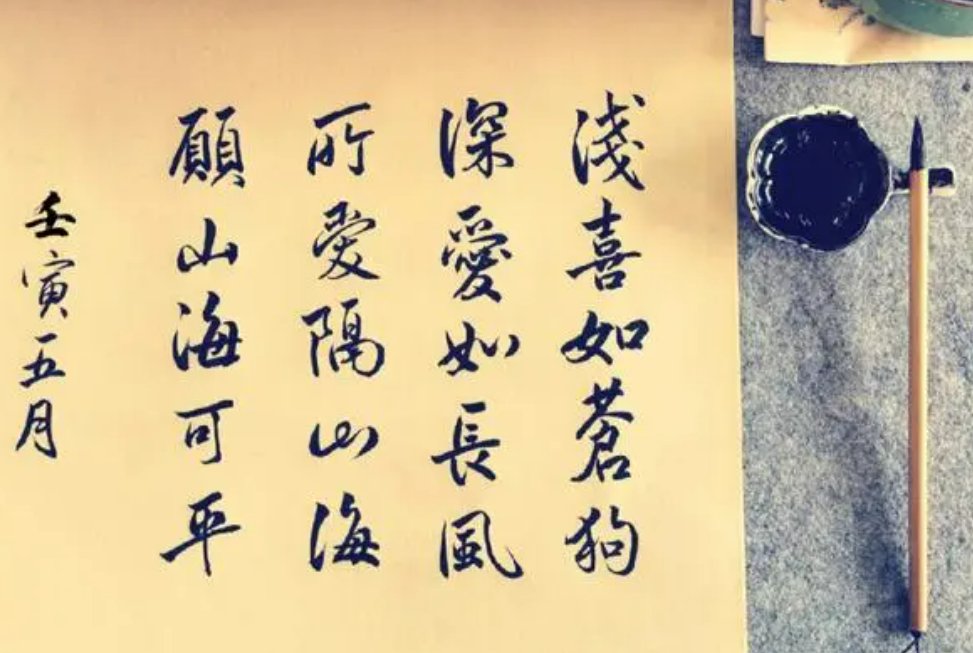 淺喜如蒼狗
深愛如長風
所愛隔山海
願山海可平
壬寅五月